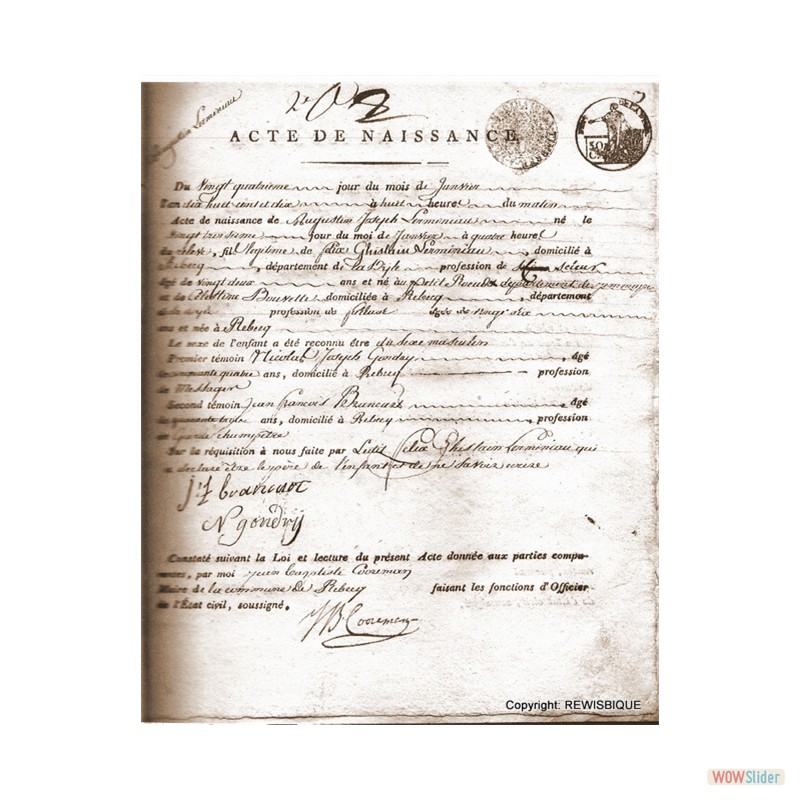 2e
ACTE DE NAISSANCE
Du Vingt quatrieme jour du mois de Janvier
l'an dix huit cent et dix à huit heures du matin
Acte de naissance de Augustin Joseph Lermineau né le
vingt troisieme jour du moi de Janvier à quatre heures
fils legitime de felix Ghislain Lermineau, domicilié à
Rebecq, département de la Dyle profession de Scieur
âgé de vingt deux ans et né au petit Rœulx departement de jemmape
et de Celestine Bouvette domiciliée à Rebecq département
de la dyle profession de fileuse âgée de vingt six
ans et née à Rebecq
Le sexe de l'enfant a été reconnu être du sexe masculin
Premier témoin Nicolas Joseph Gondry, âgé
de cinquante quatre ans, domicilié à Rebecq profession
de Messager
Second témoin Jean francois Brancart, âgé
de quarante ans, domicilié à Rebecq, profession
de garde champetre
Sur la réquisition à nous faite par Ledit felix Ghislain Lermineau qui
a declaré être le pere de l'enfant et de ne savoir ecrire
j: f brancart
N gondry
Constaté suivant la Loi et lecture du présent Acte donnée aux parties compa-
rantes, par moi jean baptiste Cooreman
Maire de la commune de Rebecq faisant les fonctions d'Officier
de l'État civil, soussigné.
JB Cooreman
Copyright: REWISBIQUE
WOWSlider